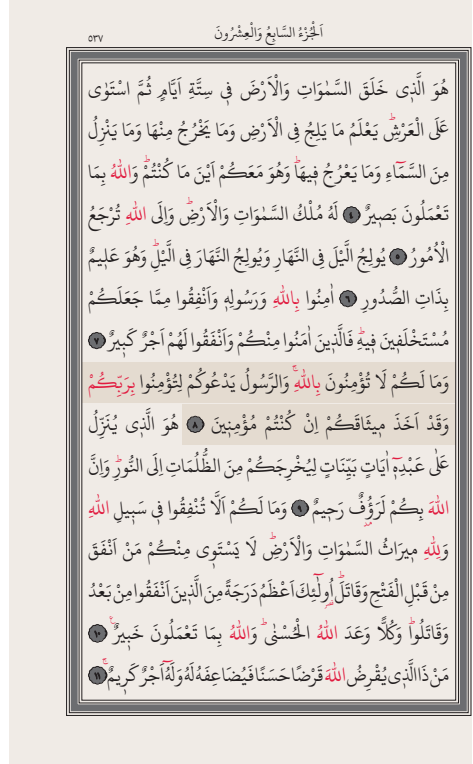 اَلْجُزْءُ السَّابِعُ وَالْعِشْرُونَ ٥٣٧
هُوَ الَّذٖى خَلَقَ السَّمٰوَاتِ وَالْاَرْضَ فٖى سِتَّةِ اَيَّامٍ ثُمَّ اسْتَوٰى
عَلَى الْعَرْشِؕ يَعْلَمُ مَا يَلِجُ فِى الْاَرْضِ وَمَا يَخْرُجُ مِنْهَا وَمَا يَنْزِلُ
مِنَ السَّمَٓاءِ وَمَا يَعْرُجُ فٖيهَاؕ وَهُوَ مَعَكُمْ اَيْنَ مَا كُنْتُمْؕ وَاللّٰهُ بِمَا
تَعْمَلُونَ بَصٖيرٌ ﴿٤﴾ لَهُ مُلْكُ السَّمٰوَاتِ وَالْاَرْضِؕ وَاِلَى اللّٰهِ تُرْجَعُ
الْاُمُورُ ﴿٥﴾ يُولِجُ الَّيْلَ فِى النَّهَارِ وَيُولِجُ النَّهَارَ فِى الَّيْلِؕ وَهُوَ عَلٖيمٌ
بِذَاتِ الصُّدُورِ ﴿٦﴾ اٰمِنُوا بِاللّٰهِ وَرَسُولِهٖ وَاَنْفِقُوا مِمَّا جَعَلَكُمْ
مُسْتَخْلَفٖينَ فٖيهِؕ فَالَّذٖينَ اٰمَنُوا مِنْكُمْ وَاَنْفَقُوا لَهُمْ اَجْرٌ كَبٖيرٌ ﴿٧﴾
وَمَا لَكُمْ لَا تُؤْمِنُونَ بِاللّٰهِۚ وَالرَّسُولُ يَدْعُوكُمْ لِتُؤْمِنُوا بِرَبِّكُمْ
وَقَدْ اَخَذَ مٖيثَاقَكُمْ اِنْ كُنْتُمْ مُؤْمِنٖينَ ﴿٨﴾ هُوَ الَّذٖى يُنَزِّلُ
عَلٰى عَبْدِهٖٓ اٰيَاتٍ بَيِّنَاتٍ لِيُخْرِجَكُمْ مِنَ الظُّلُمَاتِ اِلَى النُّورِؕ وَاِنَّ
اللّٰهَ بِكُمْ لَرَؤُفٌ رَحٖيمٌ ﴿٩﴾ وَمَا لَكُمْ اَلَّا تُنْفِقُوا فٖى سَبٖيلِ اللّٰهِ
وَلِلّٰهِ مٖيرَاثُ السَّمٰوَاتِ وَالْاَرْضِؕ لَا يَسْتَوٖى مِنْكُمْ مَنْ اَنْفَقَ
مِنْ قَبْلِ الْفَتْحِ وَقَاتَلَؕ اُو۬لٰٓئِكَ اَعْظَمُ دَرَجَةً مِنَ الَّذٖينَ اَنْفَقُوا مِنْ بَعْدُ
وَقَاتَلُواؕ وَكُلًّا وَعَدَ اللّٰهُ الْحُسْنٰىؕ وَاللّٰهُ بِمَا تَعْمَلُونَ خَبٖيرٌ ﴿١٠﴾
مَنْ ذَا الَّذٖى يُقْرِضُ اللّٰهَ قَرْضًا حَسَنًا فَيُضَاعِفَهُ لَهُ وَلَهُٓ اَجْرٌ كَرٖيمٌۚ ﴿١١﴾